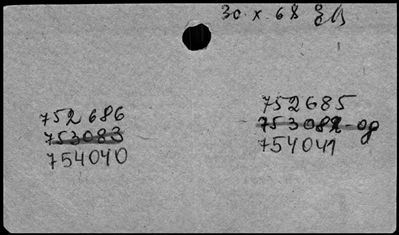 30 x 68
752 686
753083
754040
752685
753082-
754041